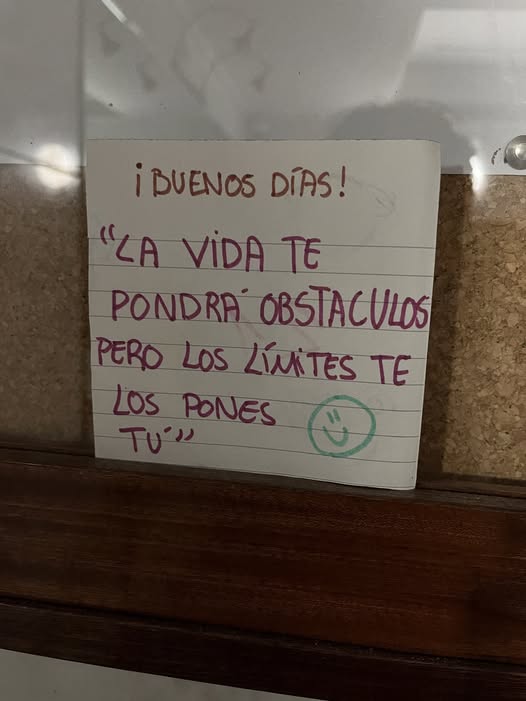 ¡BUENOS DÍAS!
"LA VIDA TE
PONDRÁ OBSTACULOS
PERO LOS LÍMITES TE
LOS PONES
TÚ"